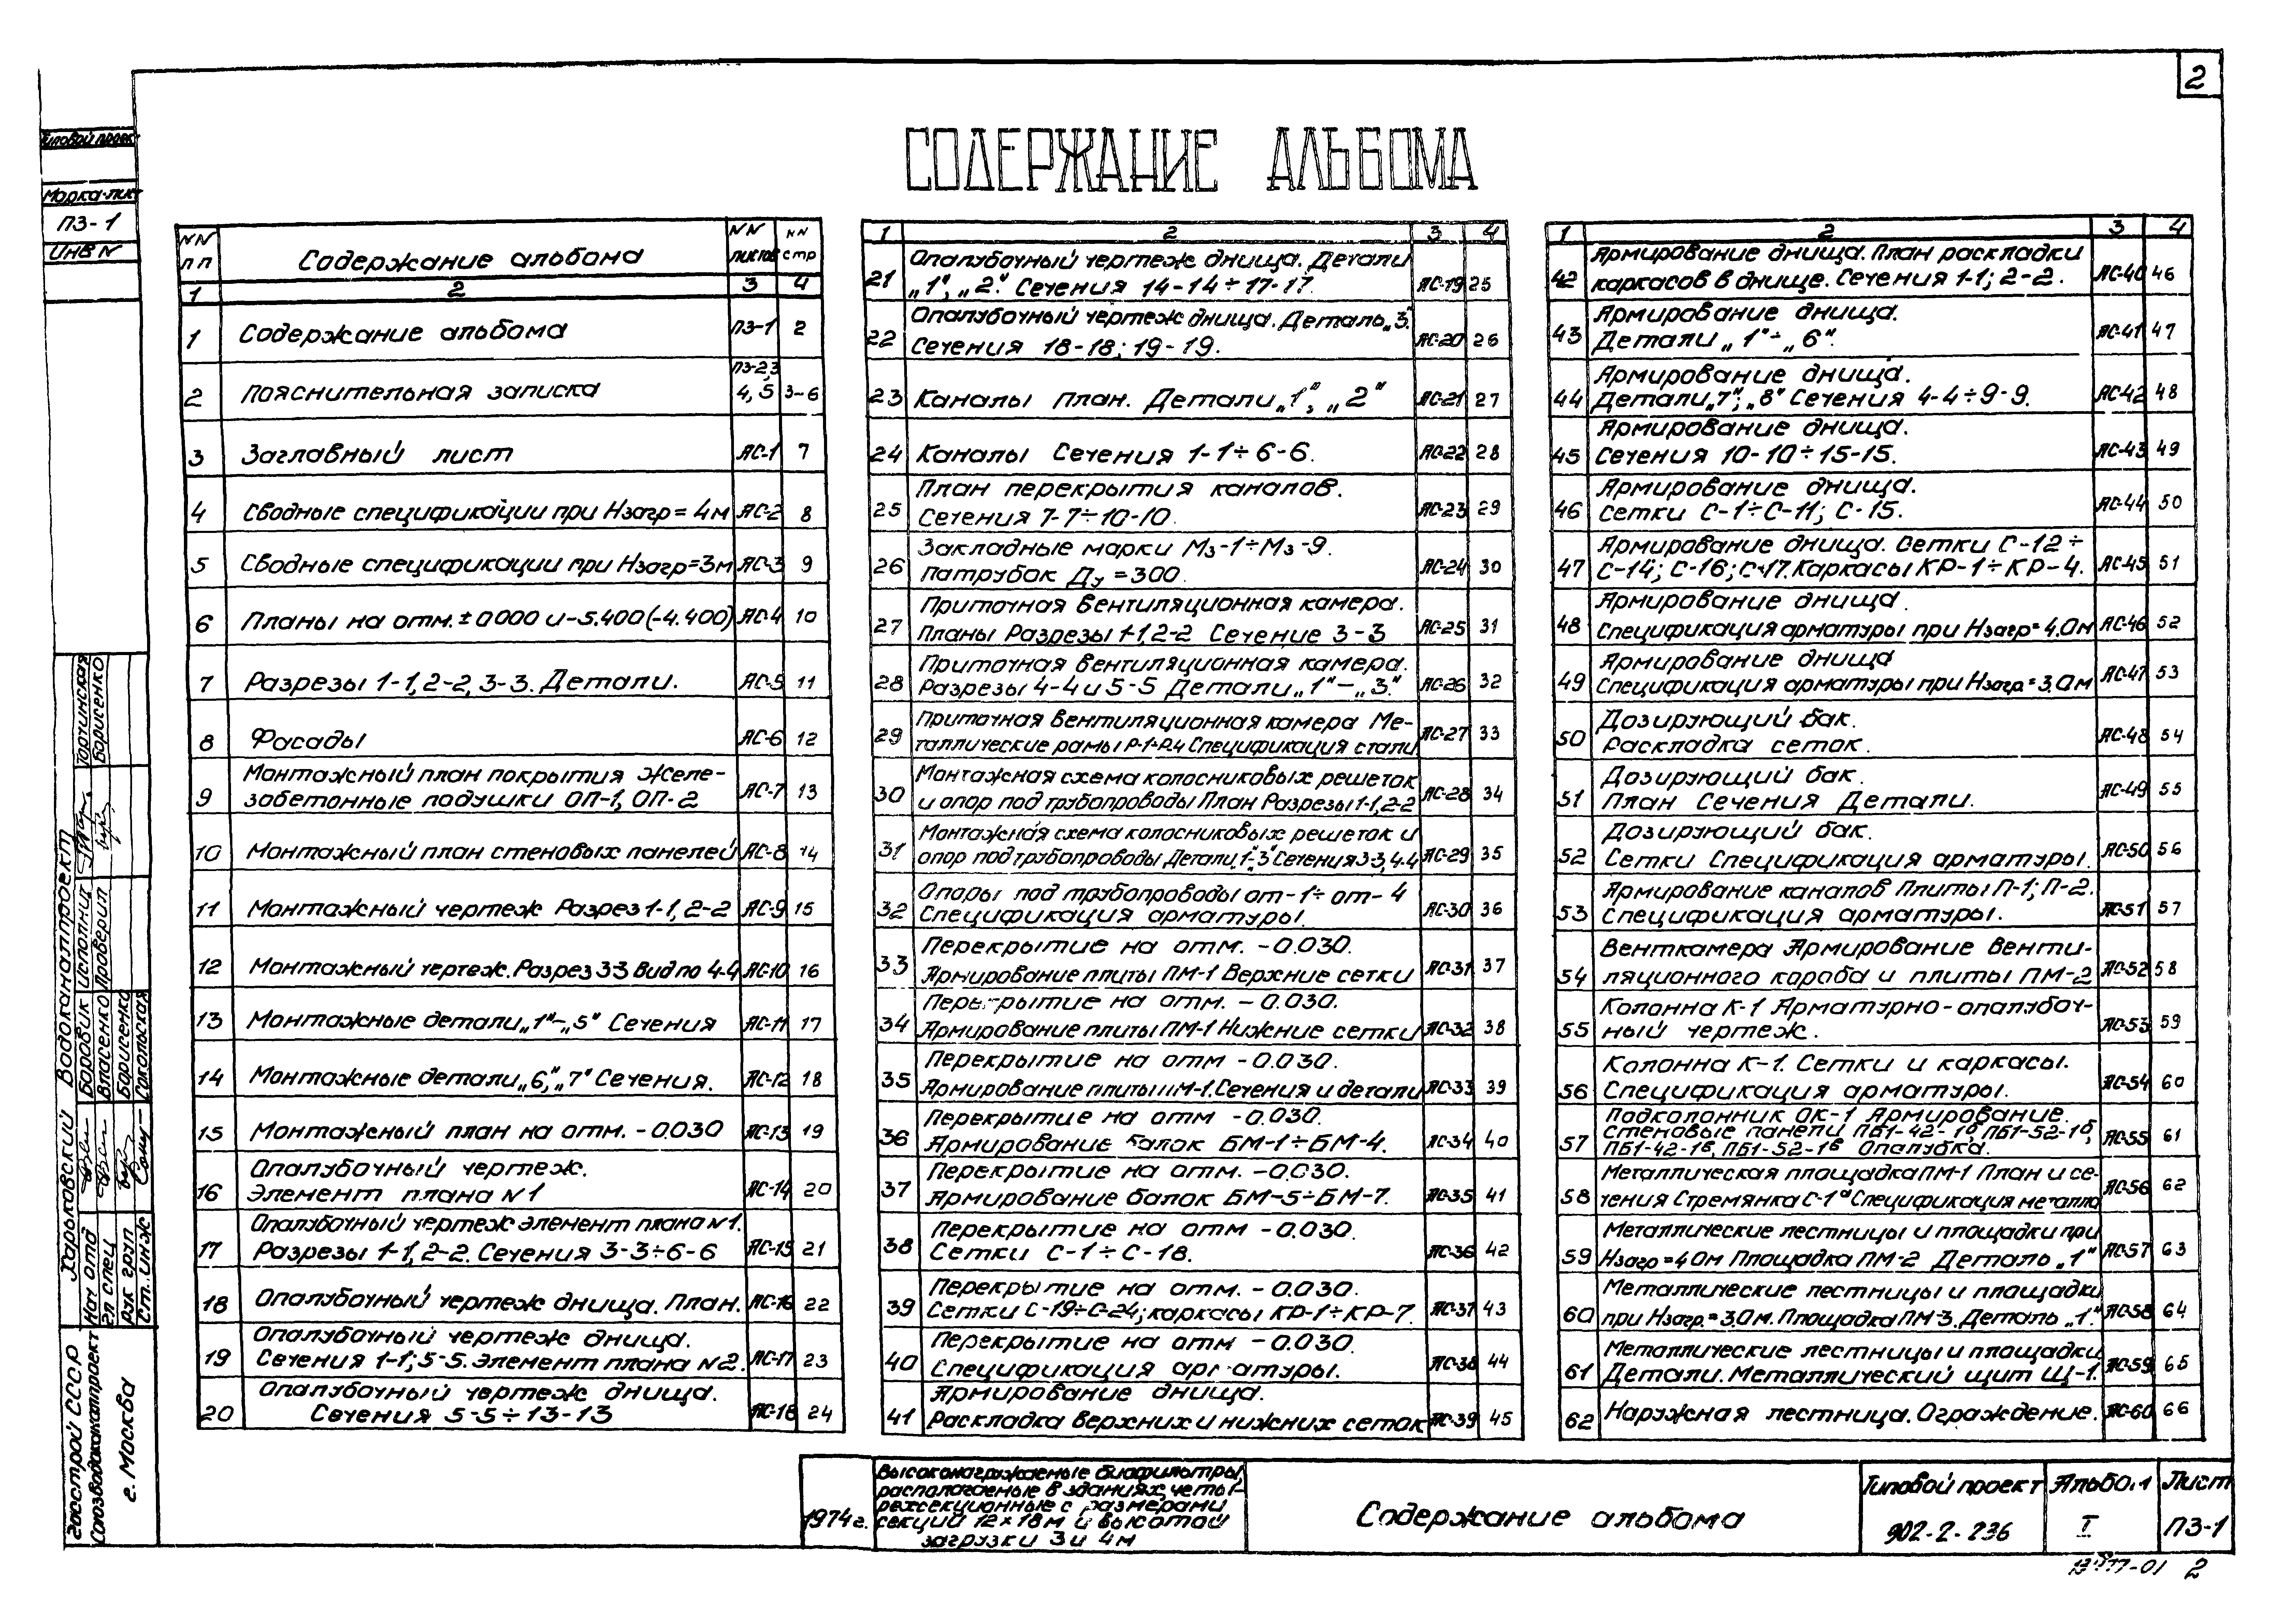 2
СОДЕРЖАНИЕ АЛЬБОМА
Типовой проект
Марка-лист
ПЗ-1
ИНВ N
NN пп | Содержание альбома | NN листов | NN стр
1 | 2 | 3 | 4
1 | Содержание альбома | ПЗ-1 | 2
2 | Пояснительная записка | ПЗ-2,3 4,5 | 3-6
3 | Заглавный лист | АС-1 | 7
4 | Сводные спецификации при Hзагр=4м | АС-2 | 8
5 | Сводные спецификации при Hзагр=3м | АС-3 | 9
6 | Планы на отм. ±0000 и -5.400(-4.400) | АС-4 | 10
7 | Разрезы 1-1, 2-2, 3-3. Детали. | АС-5 | 11
8 | Фасады | АС-6 | 12
9 | Монтажный план покрытия Желе-
забетонные подушки ОП-1, ОП-2 | АС-7 | 13
10 | Монтажный план стеновых панелей | АС-8 | 14
11 | Монтажный чертеж Разрез 1-1, 2-2 | АС-9 | 15
12 | Монтажный чертеж. Разрез 33 Вид по 4-4 | АС-10 | 16
13 | Монтажные детали „1"-„5" Сечения | АС-11 | 17
14 | Монтажные детали „6", „7" Сечения. | АС-12 | 18
15 | Монтажный план на отм. -0.030 | АС-13 | 19
16 | Опалубочный чертеж.
Элемент плана N1 | АС-14 | 20
17 | Опалубочный чертеж элемент плана N1.
Разрезы 1-1, 2-2. Сечения 3-3÷6-6 | АС-15 | 21
18 | Опалубочный чертеж днища. План. | АС-16 | 22
19 | Опалубочный чертеж днища.
Сечения 1-1; 5-5. Элемент плана N2. | АС-17 | 23
20 | Опалубочный чертеж днища.
Сечения 5-5÷13-13 | АС-18 | 24
1 | 2 | 3 | 4
21 | Опалубочный чертеж днища. Детали
„1", „2". Сечения 14-14÷17-17. | АС-19 | 25
22 | Опалубочный чертеж днища. Деталь „3".
Сечения 18-18; 19-19. | АС-20 | 26
23 | Каналы план. Детали „1", „2" | АС-21 | 27
24 | Каналы Сечения 1-1÷6-6. | АС-22 | 28
25 | План перекрытия каналов.
Сечения 7-7÷10-10. | АС-23 | 29
26 | Закладные марки Мз-1÷Мз-9.
Патрубок Ду=300. | АС-24 | 30
27 | Приточная вентиляционная камера.
Планы Разрезы 1-1, 2-2 Сечение 3-3 | АС-25 | 31
28 | Приточная вентиляционная камера.
Разрезы 4-4 и 5-5 Детали „1"-„3." | АС-26 | 32
29 | Приточная вентиляционная камера Ме-
таллические рамы Р-1÷Р-4 Спецификация стали | АС-27 | 33
30 | Монтажная схема колосниковых решеток
и опор под трубопроводы План Разрезы 1-1, 2-2 | АС-28 | 34
31 | Монтажная схема колосниковых решеток и
опор под трубопроводы Детали „1"-„3" Сечения 3-3, 4-4 | АС-29 | 35
32 | Опоры под трубопроводы от-1÷от-4
Спецификация арматуры. | АС-30 | 36
33 | Перекрытие на отм. -0.030.
Армирование плиты ПМ-1 Верхние сетки | АС-31 | 37
34 | Перекрытие на отм. -0.030.
Армирование плиты ПМ-1 Нижние сетки | АС-32 | 38
35 | Перекрытие на отм -0.030.
Армирование плиты ПМ-1. Сечения и детали | АС-33 | 39
36 | Перекрытие на отм -0.030.
Армирование балок БМ-1÷БМ-4. | АС-34 | 40
37 | Перекрытие на отм. -0.030.
Армирование балок БМ-5÷БМ-7. | АС-35 | 41
38 | Перекрытие на отм -0.030.
Сетки С-1÷С-18. | АС-36 | 42
39 | Перекрытие на отм. -0.030.
Сетки С-19÷С-24; каркасы КР-1÷КР-7. | АС-37 | 43
40 | Перекрытие на отм -0.030.
Спецификация арматуры. | АС-38 | 44
41 | Армирование днища.
Раскладка верхних и нижних сеток | АС-39 | 45
1 | 2 | 3 | 4
42 | Армирование днища. План раскладки
каркасов в днище. Сечения 1-1; 2-2. | АС-40 | 46
43 | Армирование днища.
Детали „1"÷„6". | АС-41 | 47
44 | Армирование днища.
Детали „7"; „8" Сечения 4-4÷9-9. | АС-42 | 48
45 | Армирование днища.
Сечения 10-10÷15-15. | АС-43 | 49
46 | Армирование днища.
сетки С-1÷С-11; С-15. | АС-44 | 50
47 | Армирование днища. Сетки С-12÷
С-14; С-16; С-17. Каркасы КР-1÷КР-4. | АС-45 | 51
48 | Армирование днища.
Спецификация арматуры при Hзагр=4.0м | АС-46 | 52
49 | Армирование днища
Спецификация арматуры при Hзагр=3.0м | АС-47 | 53
50 | Дозирующий бак.
Раскладка сеток. | АС-48 | 54
51 | Дозирующий бак.
План Сечения Детали. | АС-49 | 55
52 | Дозирующий бак.
Сетки Спецификация арматуры. | АС-50 | 56
53 | Армирование каналов Плиты П-1; П-2.
Спецификация арматуры. | АС-51 | 57
54 | Венткамера Армирование венти-
ляционного короба и плиты ПМ-2 | АС-52 | 58
55 | Колонна К-1 Арматурно-опалубоч-
ный чертеж. | АС-53 | 59
56 | Колонна К-1. Сетки и каркасы.
Спецификация арматуры. | АС-54 | 60
57 | Подколонник ОК-1 Армирование.
Стеновые панели ПБ1-42-1б, ПБ1-52-1б,
ПБ1-42-1в, ПБ1-52-1в Опалубка. | АС-55 | 61
58 | Металлическая площадка ПМ-1 План и се-
чения Стремянка С-1а Спецификация металла | АС-56 | 62
59 | Металлические лестницы и площадки при
Hзагр=4.0м Площадка ПМ-2 Деталь „1" | АС-57 | 63
60 | Металлические лестницы и площадки
при Hзагр.=3.0м. Площадка ПМ-3. Деталь „1". | АС-58 | 64
61 | Металлические лестницы и площадки
Детали. Металлический щит Щ-1. | АС-59 | 65
62 | Наружная лестница. Ограждение. | АС-60 | 66
Госстрой СССР
Союзводоканалпроект
г. Москва
Харьковский Водоканалпроект
Нач отд Боровик
Гл спец Власенко
Рук груп Борисенко
Ст. инж Сокольская
Исполнил
Проверил Борисенко
1974г.
Высоконагружаемые биофильтры,
располагаемые в зданиях, четы-
рехсекционные с размерами
секций 12×18м и высотой
загрузки 3 и 4м
Содержание альбома
Типовой проект
902-2-236
Альбом
I
Лист
ПЗ-1
2